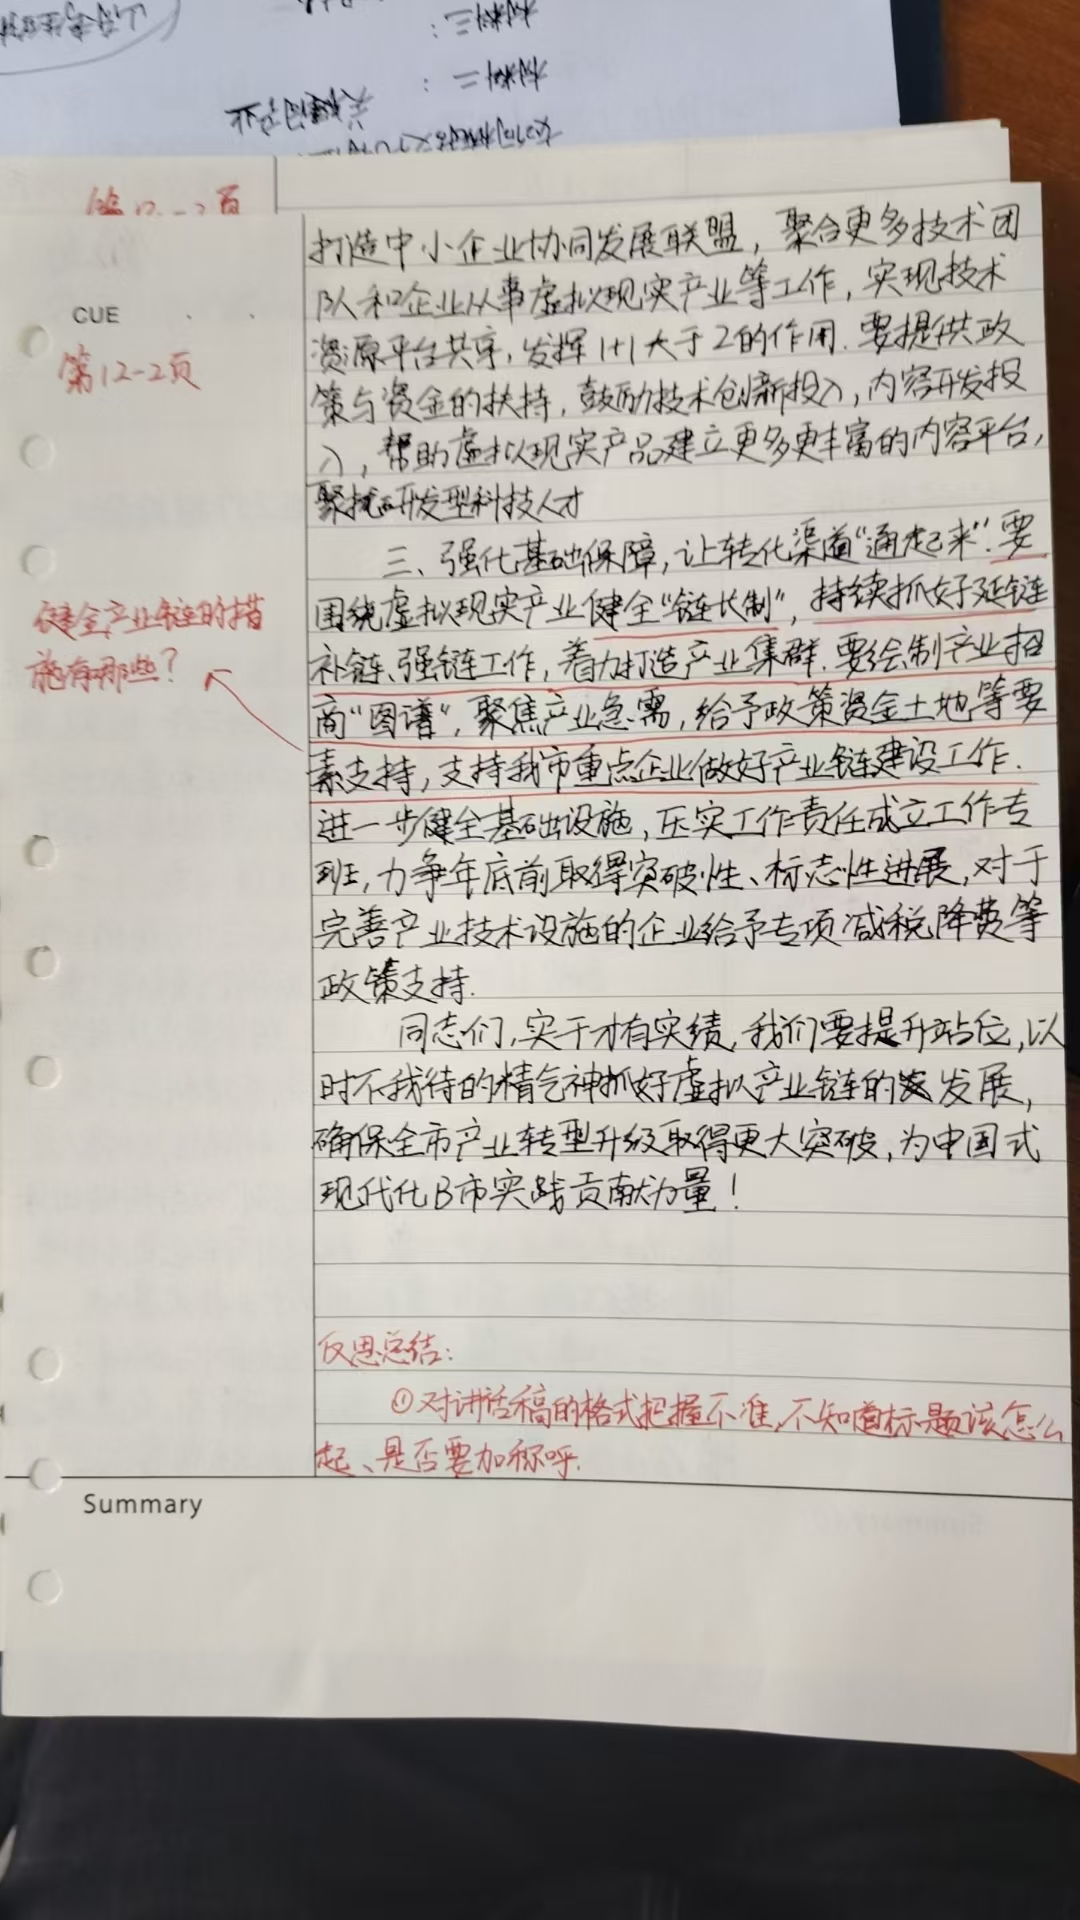 材料三：
材料二：
第12-2页
CUE
第12-2页
打造中小企业协同发展联盟，聚合更多技术团
队和企业从事虚拟现实产业等工作，实现技术
资源平台共享，发挥1+1大于2的作用.要提供政
策与资金的扶持，鼓励技术创新投入，内容开发投
入，帮助虚拟现实产品建立更多更丰富的内容平台，
聚拢研发型科技人才
三、强化基础保障，让转化渠道“通起来”.要
围绕虚拟现实产业健全“链长制”，持续抓好延链
补链、强链工作，着力打造产业集群.要绘制产业招
商“图谱”，聚焦产业急需，给予政策资金土地等要
素支持，支持我市重点企业做好产业链建设工作.
健全产业链的措
施有哪些？
进一步健全基础设施，压实工作责任成立工作专
班，力争年底前取得突破性、标志性进展，对于
完善产业技术设施的企业给予专项减税降费等
政策支持.
同志们，实干才有实绩，我们要提升站位，以
时不我待的精气神抓好虚拟产业链的发展，
确保全市产业转型升级取得更大突破，为中国式
现代化B市实践贡献力量！
反思总结：
①对讲话稿的格式把握不准，不知道标题该怎么
起、是否要加称呼.
Summary